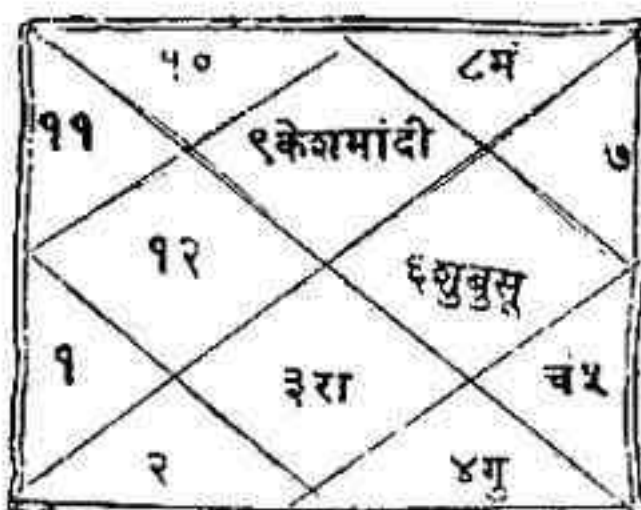 १० ८मं
११ ९केशमांदी ७
१२ ६शुबुसू
१ ३रा चं५
२ ४गु